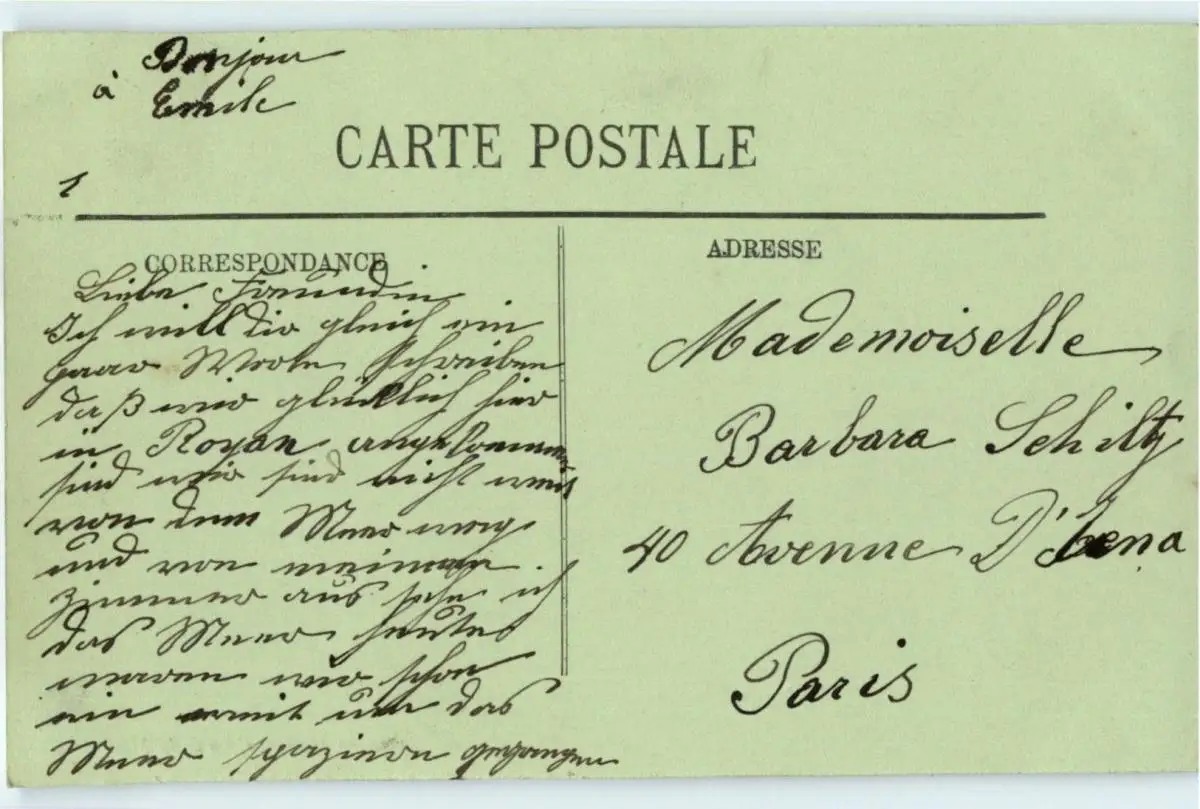 Bonjour
à Emile
CARTE POSTALE
1
CORRESPONDANCE
Liebe Freundin
Ich will dir gleich ein
paar Worte schreiben
daß wir glücklich hier
in Royan angekommen
sind wir sind nicht weit
von dem Meer weg
und von meinem
Zimmer aus sehe ich
das Meer heute
waren wir schon
ein weit um das
Meer spazieren gegangen
ADRESSE
Mademoiselle
Barbara Schiltz
40 Avenue D'Iena
Paris